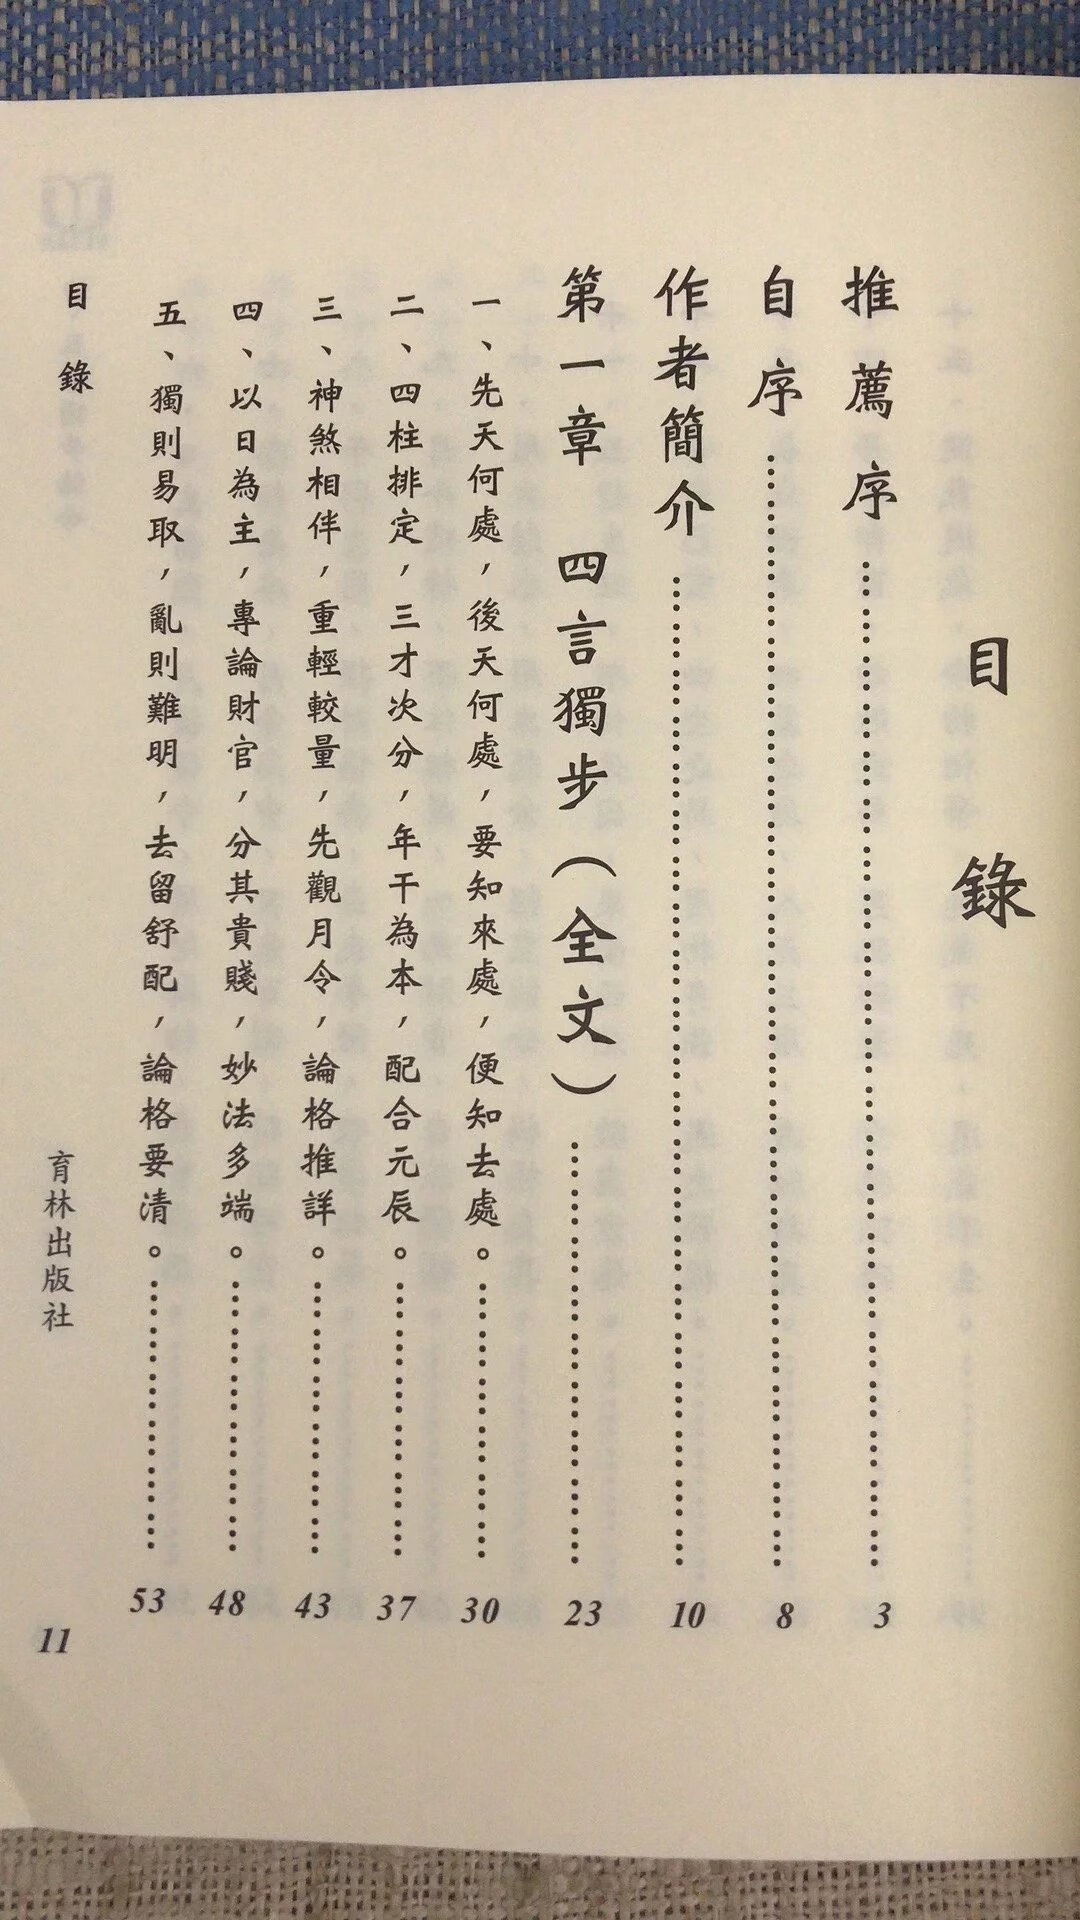 目錄
推薦序……3
自序……8
作者簡介……10
第一章 四言獨步（全文）……23
一、先天何處，後天何處，要知來處，便知去處。……30
二、四柱排定，三才次分，年干為本，配合元辰。……37
三、神煞相伴，重輕較量，先觀月令，論格推詳。……43
四、以日為主，專論財官，分其貴賤，妙法多端。……48
五、獨則易取，亂則難明，去留舒配，論格要清。……53
目錄
育林出版社
11